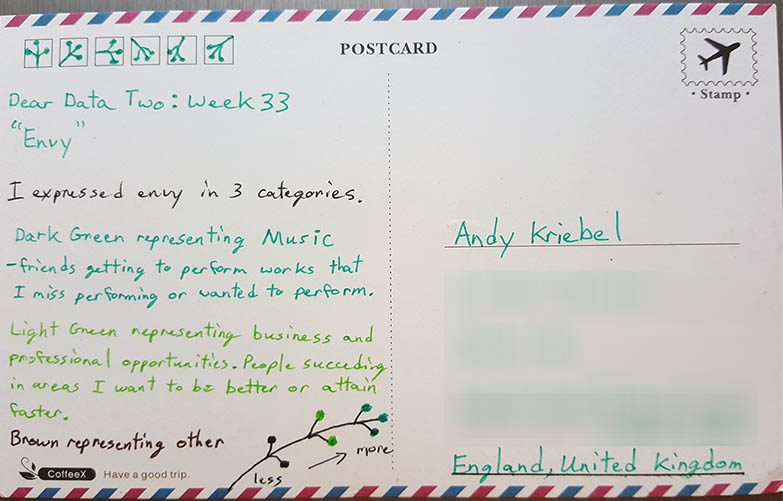 POSTCARD
Stamp
Dear Data Two: Week 33
"Envy"
I expressed envy in 3 categories.
Dark Green representing Music
-friends getting to perform works that
I miss performing or wanted to perform.
Light Green representing business and
professional opportunities. People succeding
in areas I want to be better or attain
faster.
Brown representing other
less
more
CoffeeX Have a good trip.
Andy Kriebel
England, United Kingdom